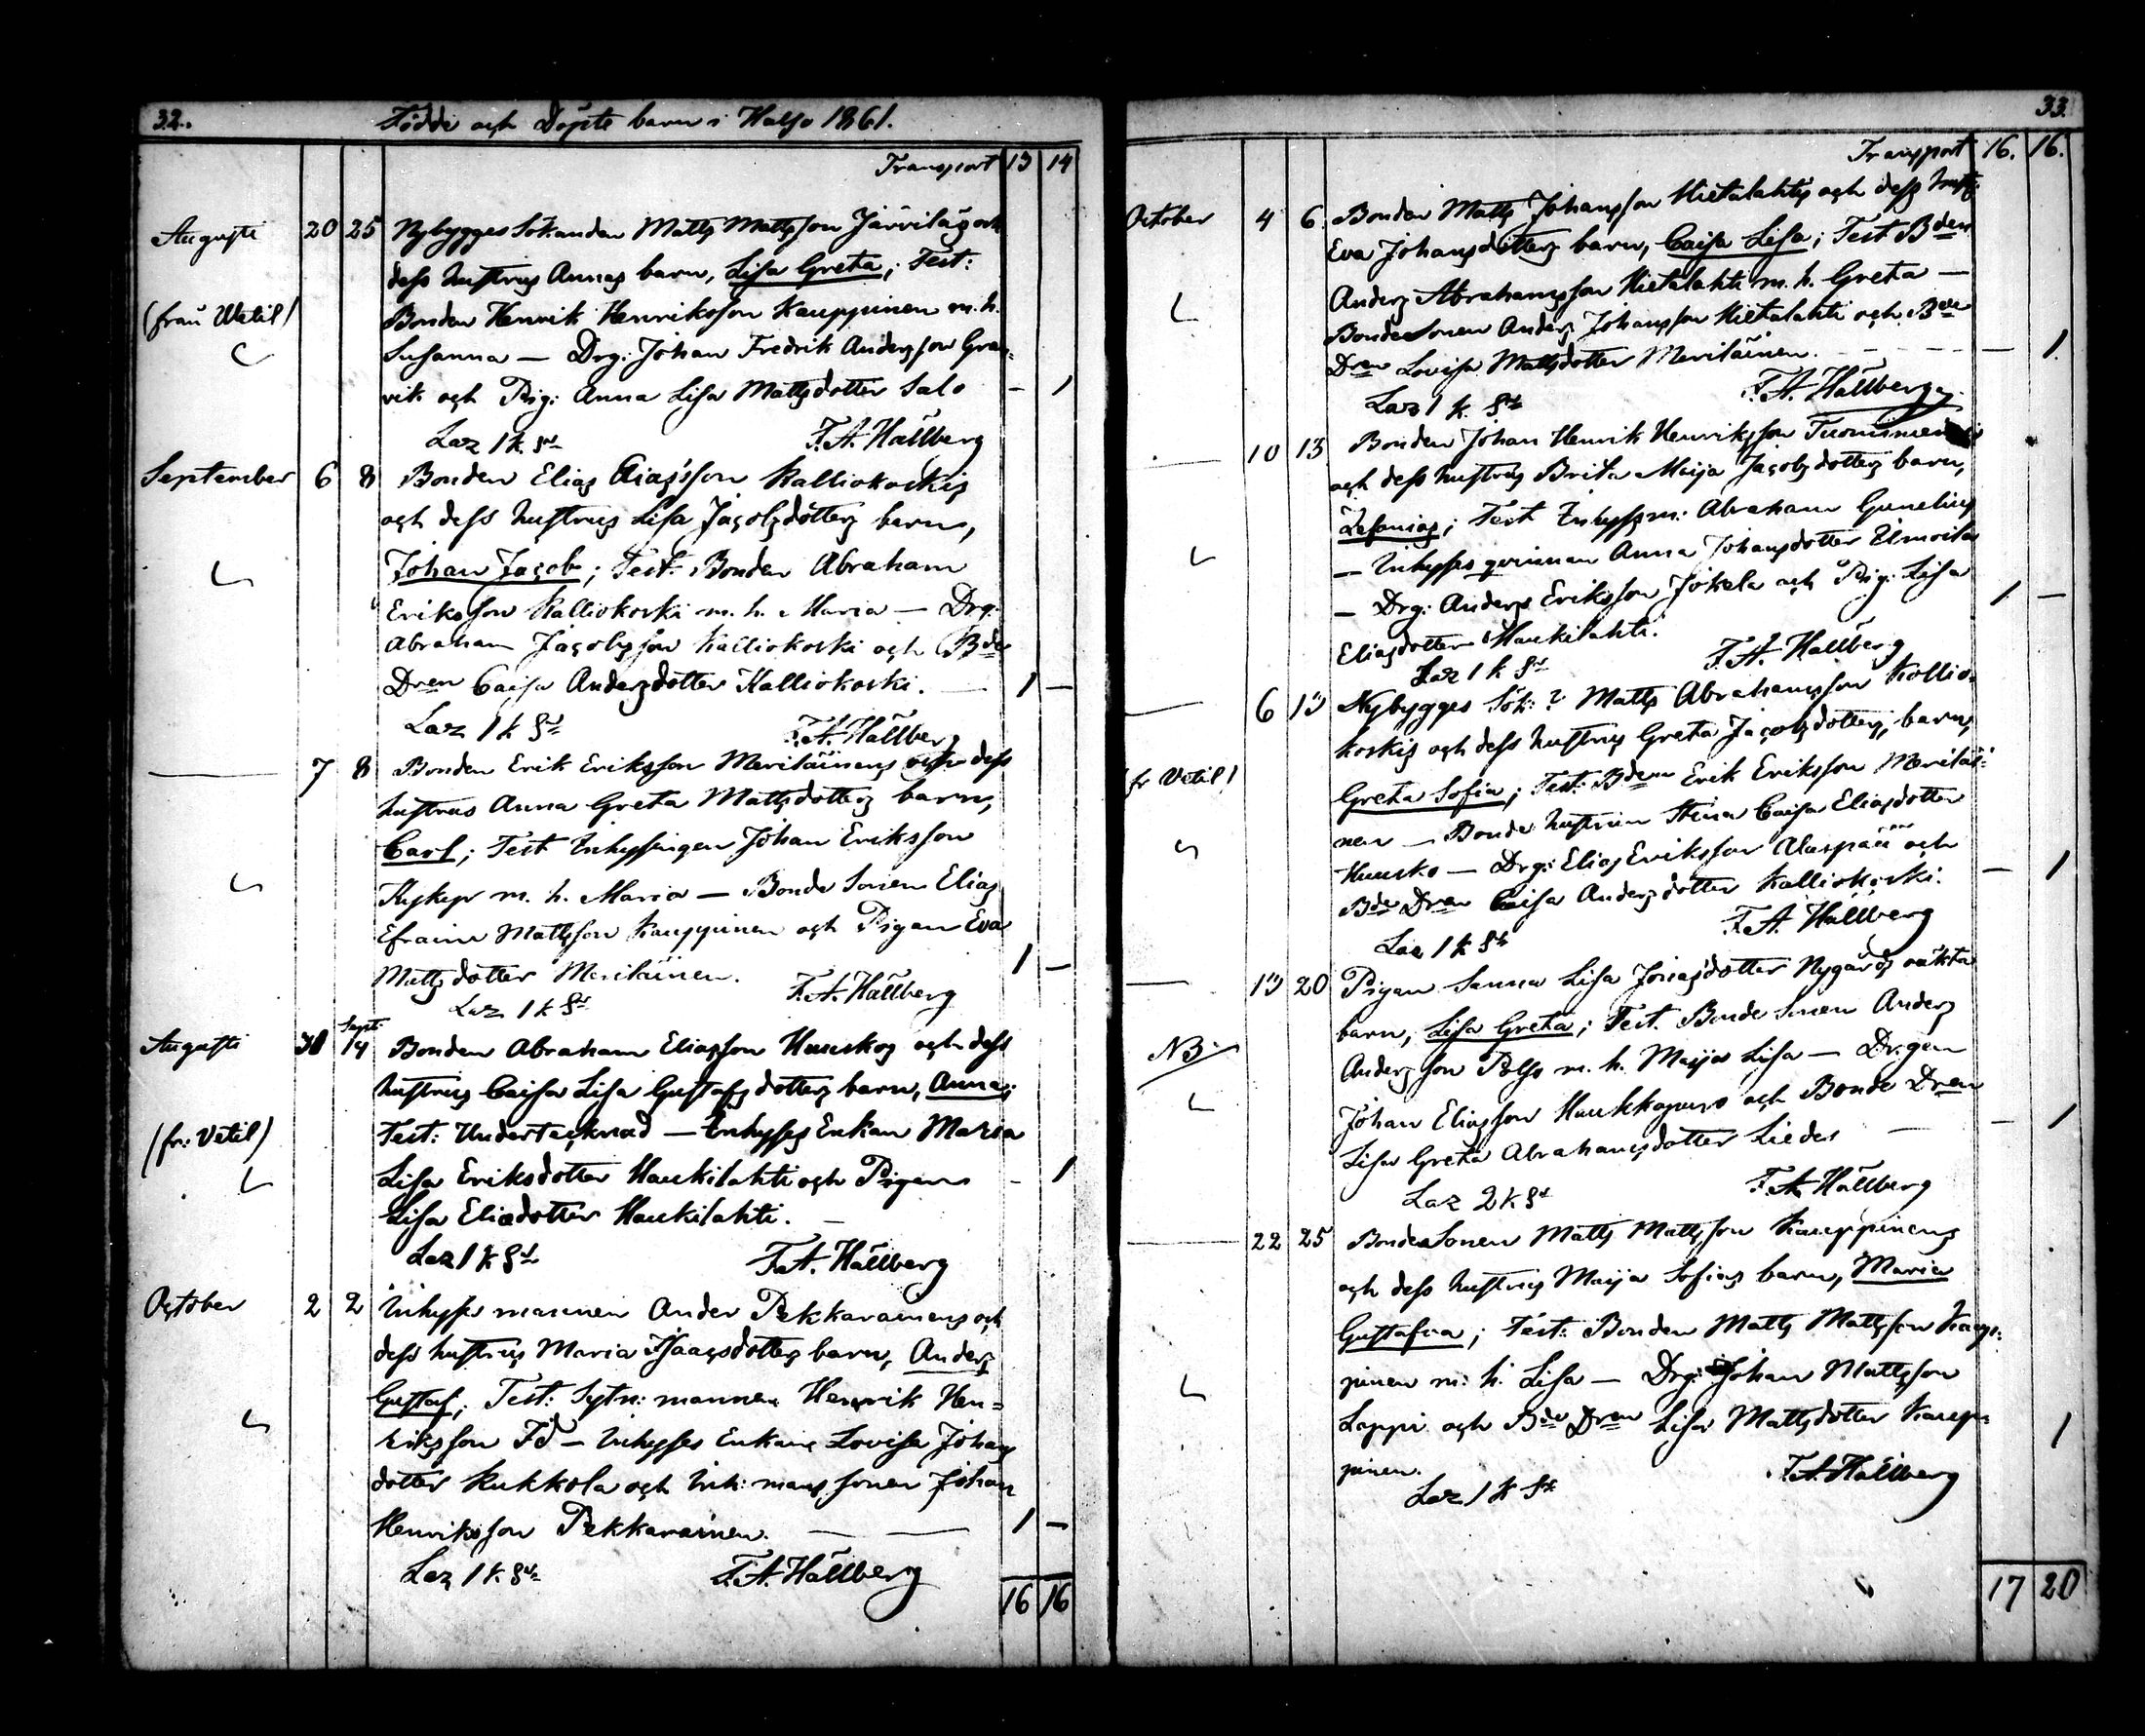 32. Födde och Döpte barn i Halso 1861.
Transport 13 14
Augusti 20 25 Nybygges Sökanden Matts Mattsson Järviläs och
dess hustrus Annas barn, Lisa Greta; Test:
(från Wetil) Bonden Henrik Henriksson Kauppinen m. h.
Susanna — Drg: Johan Fredrik Andersson Gran-
vik och Pig: Anna Lisa Mattsdotter Salo — 1
Laz 1 k. Sr F. A. Hällberg
September 6 8 Bonden Elias Eliasson Kalliokoskis
och dess hustrus Lisa Jacobsdotters barn,
Johan Jacob; Test: Bonden Abraham
Eriksson Kalliokoski m. h. Maria — Drg:
Abraham Jacobsson Kalliokoski och Bde
Dren Caisa Andersdotter Kalliokoski. — 1 —
Laz 1 k Sr F. A. Hällberg
— 7 8 Bonden Erik Eriksson Meriläinens och dess
hustrus Anna Greta Mattsdotters barn,
Carl; Test Inhysingen Johan Eriksson
Kykyr m. h. Maria — Bonde Sonen Elias
Efraim Mattsson Kauppinen och Pigan Eva
Mattsdotter Meriläinen. 1 —
Laz 1 k Sr F. A. Hällberg
Augusti 30 Sept: 14 Bonden Abraham Eliasson Huuskos och dess
hustrus Caisa Lisa Gustafsdotters barn, Anna;
(fr: Vetil) Test: Undertecknad — Inhyses Enkan Maria
Lisa Eriksdotter Haukilahti och Pigan — 1
Lisa Eliasdotter Haukilahti. —
Laz 1 k Sr F. A. Hällberg
October 2 2 Inhyses mannen Anders Pekkarainens och
dess hustrus Maria Isaacsdotters barn, Anders
Gustaf; Test: Sytn: mannen Henrik Hen=
riksson Fd — Inhyses Enkan Lovisa Johans
dotter Kukkola och Inh: mans sonen Johan
Henriksson Pekkarainen. — — 1 —
Laz 1 k. Sr F. A. Hällberg
16 16
33.
Transport 16. 16.
October 4 6. Bonden Matts Johansson Hietalahtis och dess hust:
Eva Johansdotters barn, Caisa Lisa; Test Bden
Anders Abrahamsson Hietalahti m. h. Greta —
BondeSonen Anders Johansson Hietalahti och Bde
Dren Lovisa Mattsdotter Meriläinen. — — — 1
Laz 1 k. Sr F. A. Hällberg
— 10 13 Bonden Johan Henrik Henriksson Tuominens
och dess hustrus Brita Maija Jacobsdotters barn,
Zefanias; Test Inhysesm: Abraham Gunelius
— Inhyses qvinnan Anna Johansdotter
— Drg: Anders Eriksson Jokela och Pig: Lisa 1 —
Eliasdotter Haukilahti.
Laz 1 k Sr F. A. Hällberg
— 6 13 Nybygges Sök: ? Matts Abrahamsson Kallio-
koskis och dess hustrus Greta Jacobsdotters, barn,
(fr Vetil) Greta Sofia; Test: Bden Erik Eriksson Meriläi-
nen — Bonde hustrun Stina Caisa Eliasdotter
Huusko — Drg: Elias Eriksson Alaspää och
Bde Dren Caisa Andersdotter Kalliokoski. — 1
Laz 1 k Sr F. A. Hällberg
— 13 20 Pigan Sanna Lisa Jonasdotter Nygårds oäkta
barn, Lisa Greta; Test. Bonde Sonen Anders
NB: Andersson Polso m. h. Maija Lisa — Dr:gen
Johan Eliasson Haukkapuro och Bonde Dren
Lisa Greta Abrahamsdotter Liedes — — 1
Laz 2 k Sr F. A. Hällberg
— 22 25 BondeSonen Matts Mattsson Kauppinens
och dess hustrus Maija Sofias barn, Maria
Gustafva; Test: Bonden Matts Mattsson Kaup:
pinen m: h. Lisa — Drg: Johan Mattsson
Lappi och Bde Dren Lisa Mattsdotter Kaup= 1
pinen.
Laz 1 k Sr F. A. Hällberg
17 20